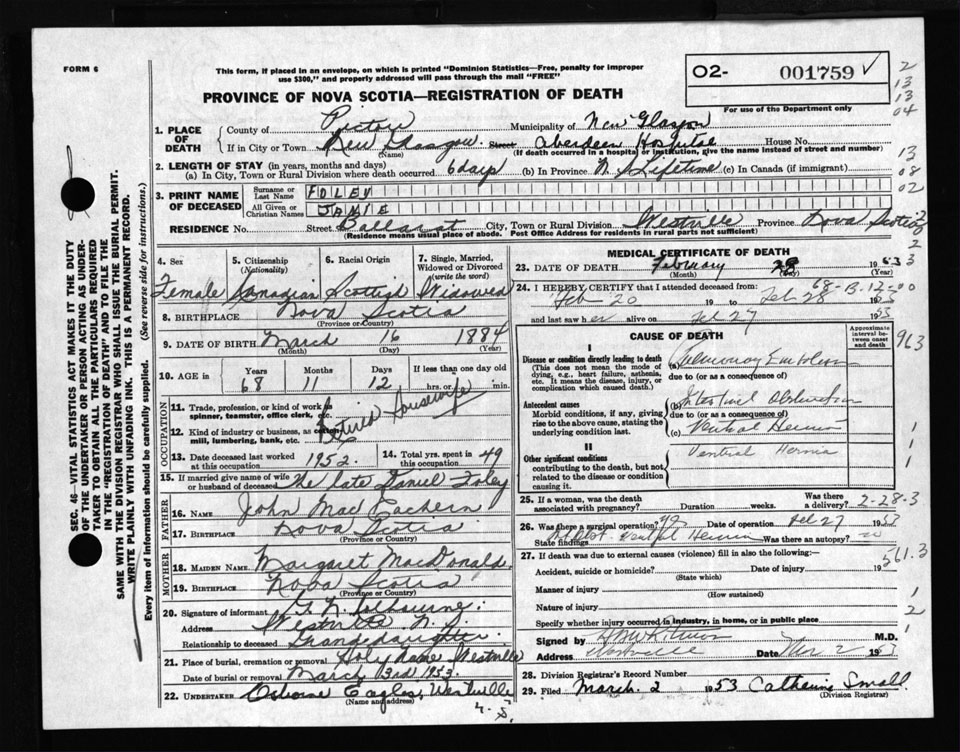 FORM 6
This form, if placed in an envelope, on which is printed "Dominion Statistics—Free, penalty for improper
use $300," and properly addressed will pass through the mail "FREE"
O2- 001759 ✓
For use of the Department only
PROVINCE OF NOVA SCOTIA—REGISTRATION OF DEATH
2
13
13
04
13
08
02
2
3
1. PLACE OF DEATH
County of Pictou Municipality of New Glasgow
If in City or Town New Glasgow Street Aberdeen Hospital House No.
(Name) (If death occurred in a hospital or institution, give the name instead of street and number)
2. LENGTH OF STAY (in years, months and days)
(a) In City, Town or Rural Division where death occurred 6 days (b) In Province Lifetime (c) In Canada (if immigrant)
3. PRINT NAME OF DECEASED
Surname or Last Name FOLEY
All Given or Christian Names JANIE
RESIDENCE No. Street Ballarat City, Town or Rural Division Westville Province Nova Scotia
(Residence means usual place of abode. Post Office Address for residents in rural parts not sufficient)
SEC. 46—VITAL STATISTICS ACT MAKES IT THE DUTY
OF THE UNDERTAKER OR PERSON ACTING AS UNDER-
TAKER TO OBTAIN ALL THE PARTICULARS REQUIRED
IN THE "REGISTRATION OF DEATH" AND TO FILE THE
SAME WITH THE DIVISION REGISTRAR WHO SHALL ISSUE THE BURIAL PERMIT.
WRITE PLAINLY WITH UNFADING INK. THIS IS A PERMANENT RECORD.
Every item of information should be carefully supplied. (See reverse side for instructions.)
4. Sex
Female
5. Citizenship
(Nationality)
Canadian
6. Racial Origin
Scottish
7. Single, Married, Widowed or Divorced
(write the word)
Widowed
8. BIRTHPLACE Nova Scotia
(Province or Country)
9. DATE OF BIRTH March 16 1884
(Month) (Day) (Year)
10. AGE in
Years Months Days If less than one day old
68 11 12 hrs. or min.
OCCUPATION
11. Trade, profession, or kind of work as
spinner, teamster, office clerk, etc.
Retired Housewife
12. Kind of industry or business, as cotton
mill, lumbering, bank, etc.
13. Date deceased last worked
at this occupation 1952.
14. Total yrs. spent in
this occupation 49
15. If married give name of wife
or husband of deceased The late Daniel Foley
FATHER
16. NAME John MacEachern
17. BIRTHPLACE Nova Scotia
(Province or Country)
MOTHER
18. MAIDEN NAME Margaret MacDonald
19. BIRTHPLACE Nova Scotia
(Province or Country)
20. Signature of informant
Address Westville N. S.
Relationship to deceased Granddaughter
21. Place of burial, cremation or removal Holy Name Westville
Date of burial or removal March 3rd 1953.
22. UNDERTAKER Osborne Eagles, Westville
(Name and address)
N. S.
MEDICAL CERTIFICATE OF DEATH
23. DATE OF DEATH February 28 1953
(Day) (Year)
68-B.12-00
24. I HEREBY CERTIFY that I attended deceased from:
Feb 20 19 to Feb 28 1953
and last saw her alive on Feb 27 1953
CAUSE OF DEATH
Approximate interval between onset and death
963
I
Disease or condition directly leading to death
(This does not mean the mode of
dying, e.g., heart failure, asthenia,
etc. It means the disease, injury, or
complication which caused death.)
(a) Pulmonary Embolism
due to (or as a consequence of)
Antecedent causes
Morbid conditions, if any, giving
rise to the above cause, stating the
underlying condition last.
(b) Intestinal Obstruction
due to (or as a consequence of)
(c) Ventral Hernia
II
Other significant conditions
contributing to the death, but not
related to the disease or condition
causing it.
Ventral Hernia
1
1
1
25. If a woman, was the death
associated with pregnancy? Duration weeks. Was there
a delivery?
2-28-3
26. Was there a surgical operation? Date of operation Feb 27 1953
State findings Ventral Hernia Was there an autopsy? no
27. If death was due to external causes (violence) fill in also the following:—
561.3
Accident, suicide or homicide? Date of injury 19
(State which)
Manner of injury
(How sustained)
1
Nature of injury
2
Specify whether injury occurred in industry, in home, or in public place
1
Signed by M.D.
Address Westville Date Mar 2 1953
28. Division Registrar's Record Number
29. Filed March. 2 1953 Catherine Small
(Division Registrar)